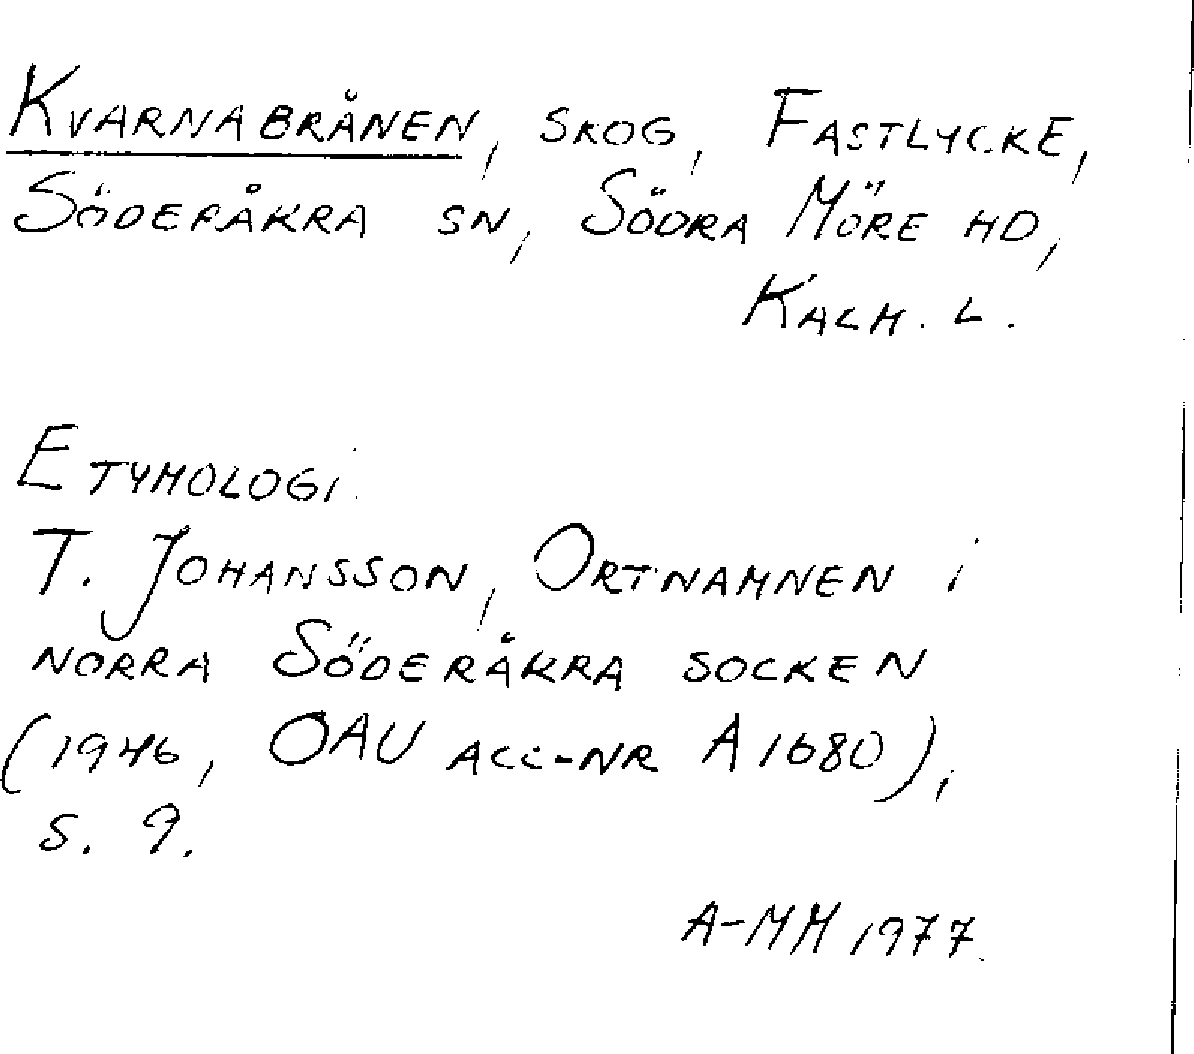 Kvarnabrånen, skog, Fastlycke,
Söderåkra sn, Södra Möre hd,
Kalm. l.
Etymologi.
T. Johansson, Ortnamnen i
norra Söderåkra socken
(1946, OAU acc-nr A 1680),
s. 9.
A-MM 1977.